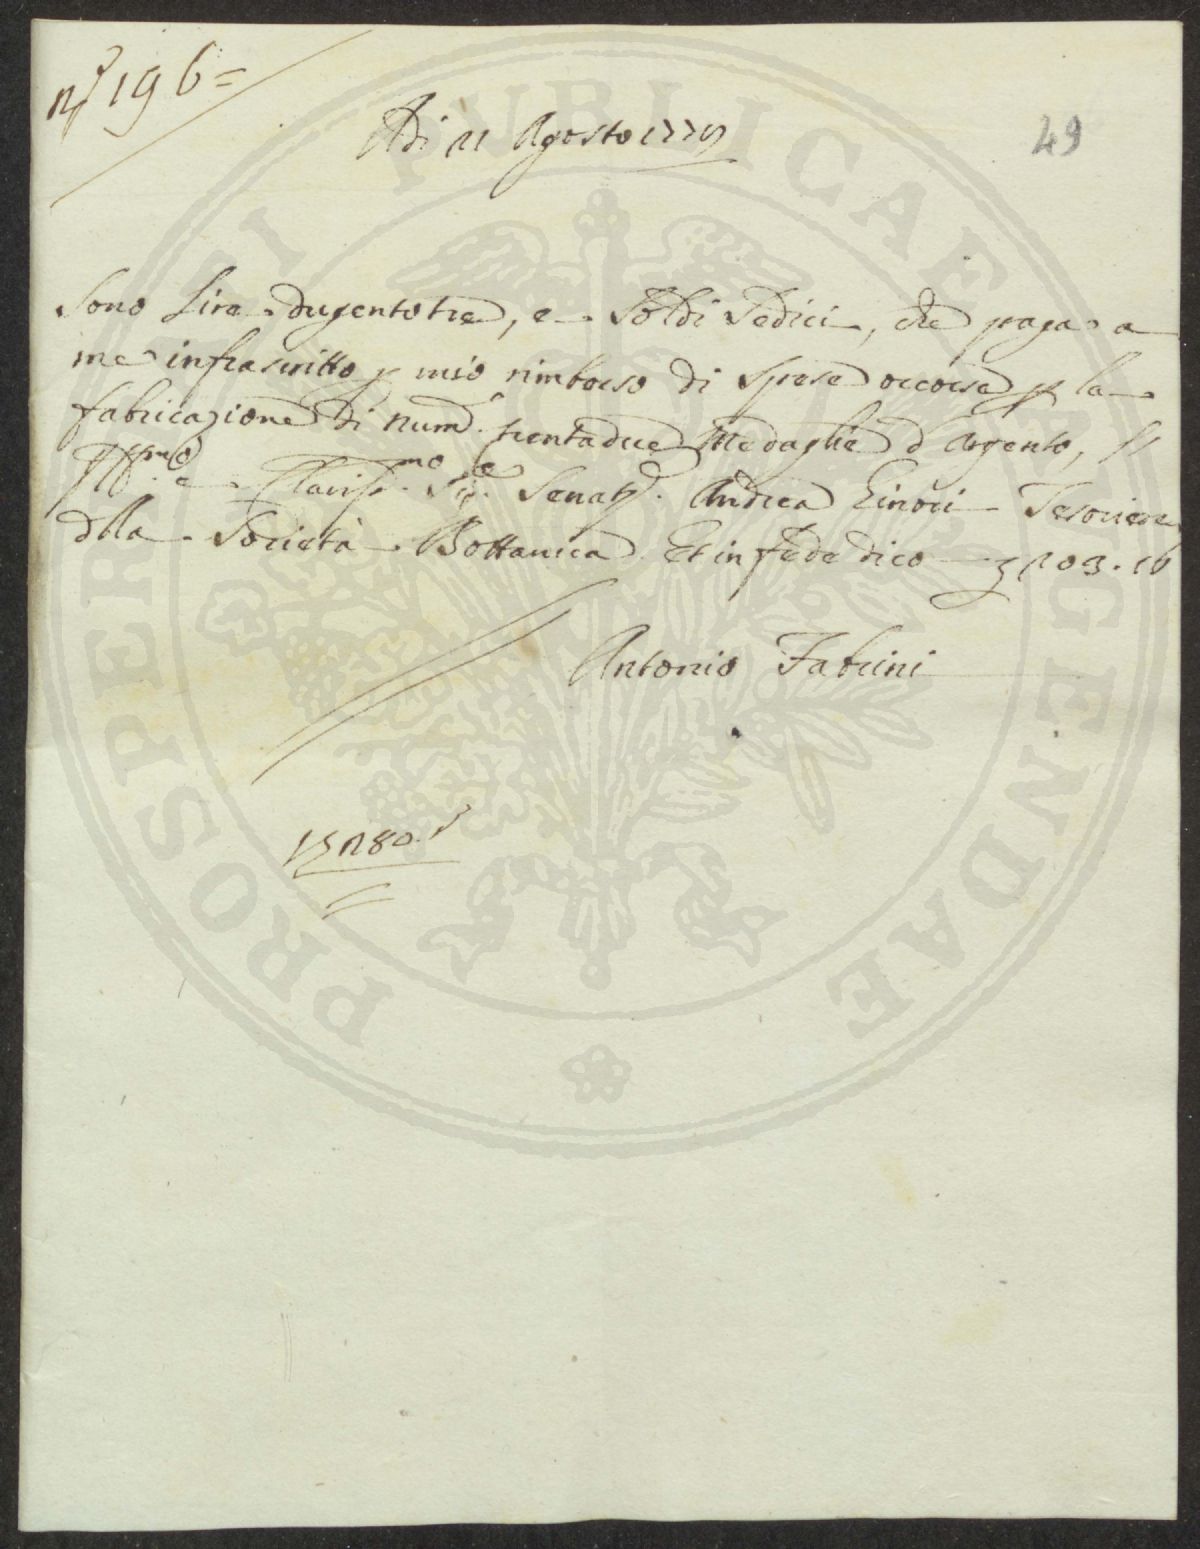 n.º 196 =
Adi 21 Agosto 1779
49
Sono Lire dugentotre, e Soldi Sedici, che paga a
me infrascritto p mio rimborso di Spese occorse p la
fabricazione di num.º trentadue Medaglie d'Argento, Il
Ill.mo e Clariss.mo Sig.e Senat.e Andrea Ginori Tesoriere
dlla Società Bottanica Et in fede dico 203.16
Antonio Fabrini
PROSPERITATI PUBLICAE AUGENDAE